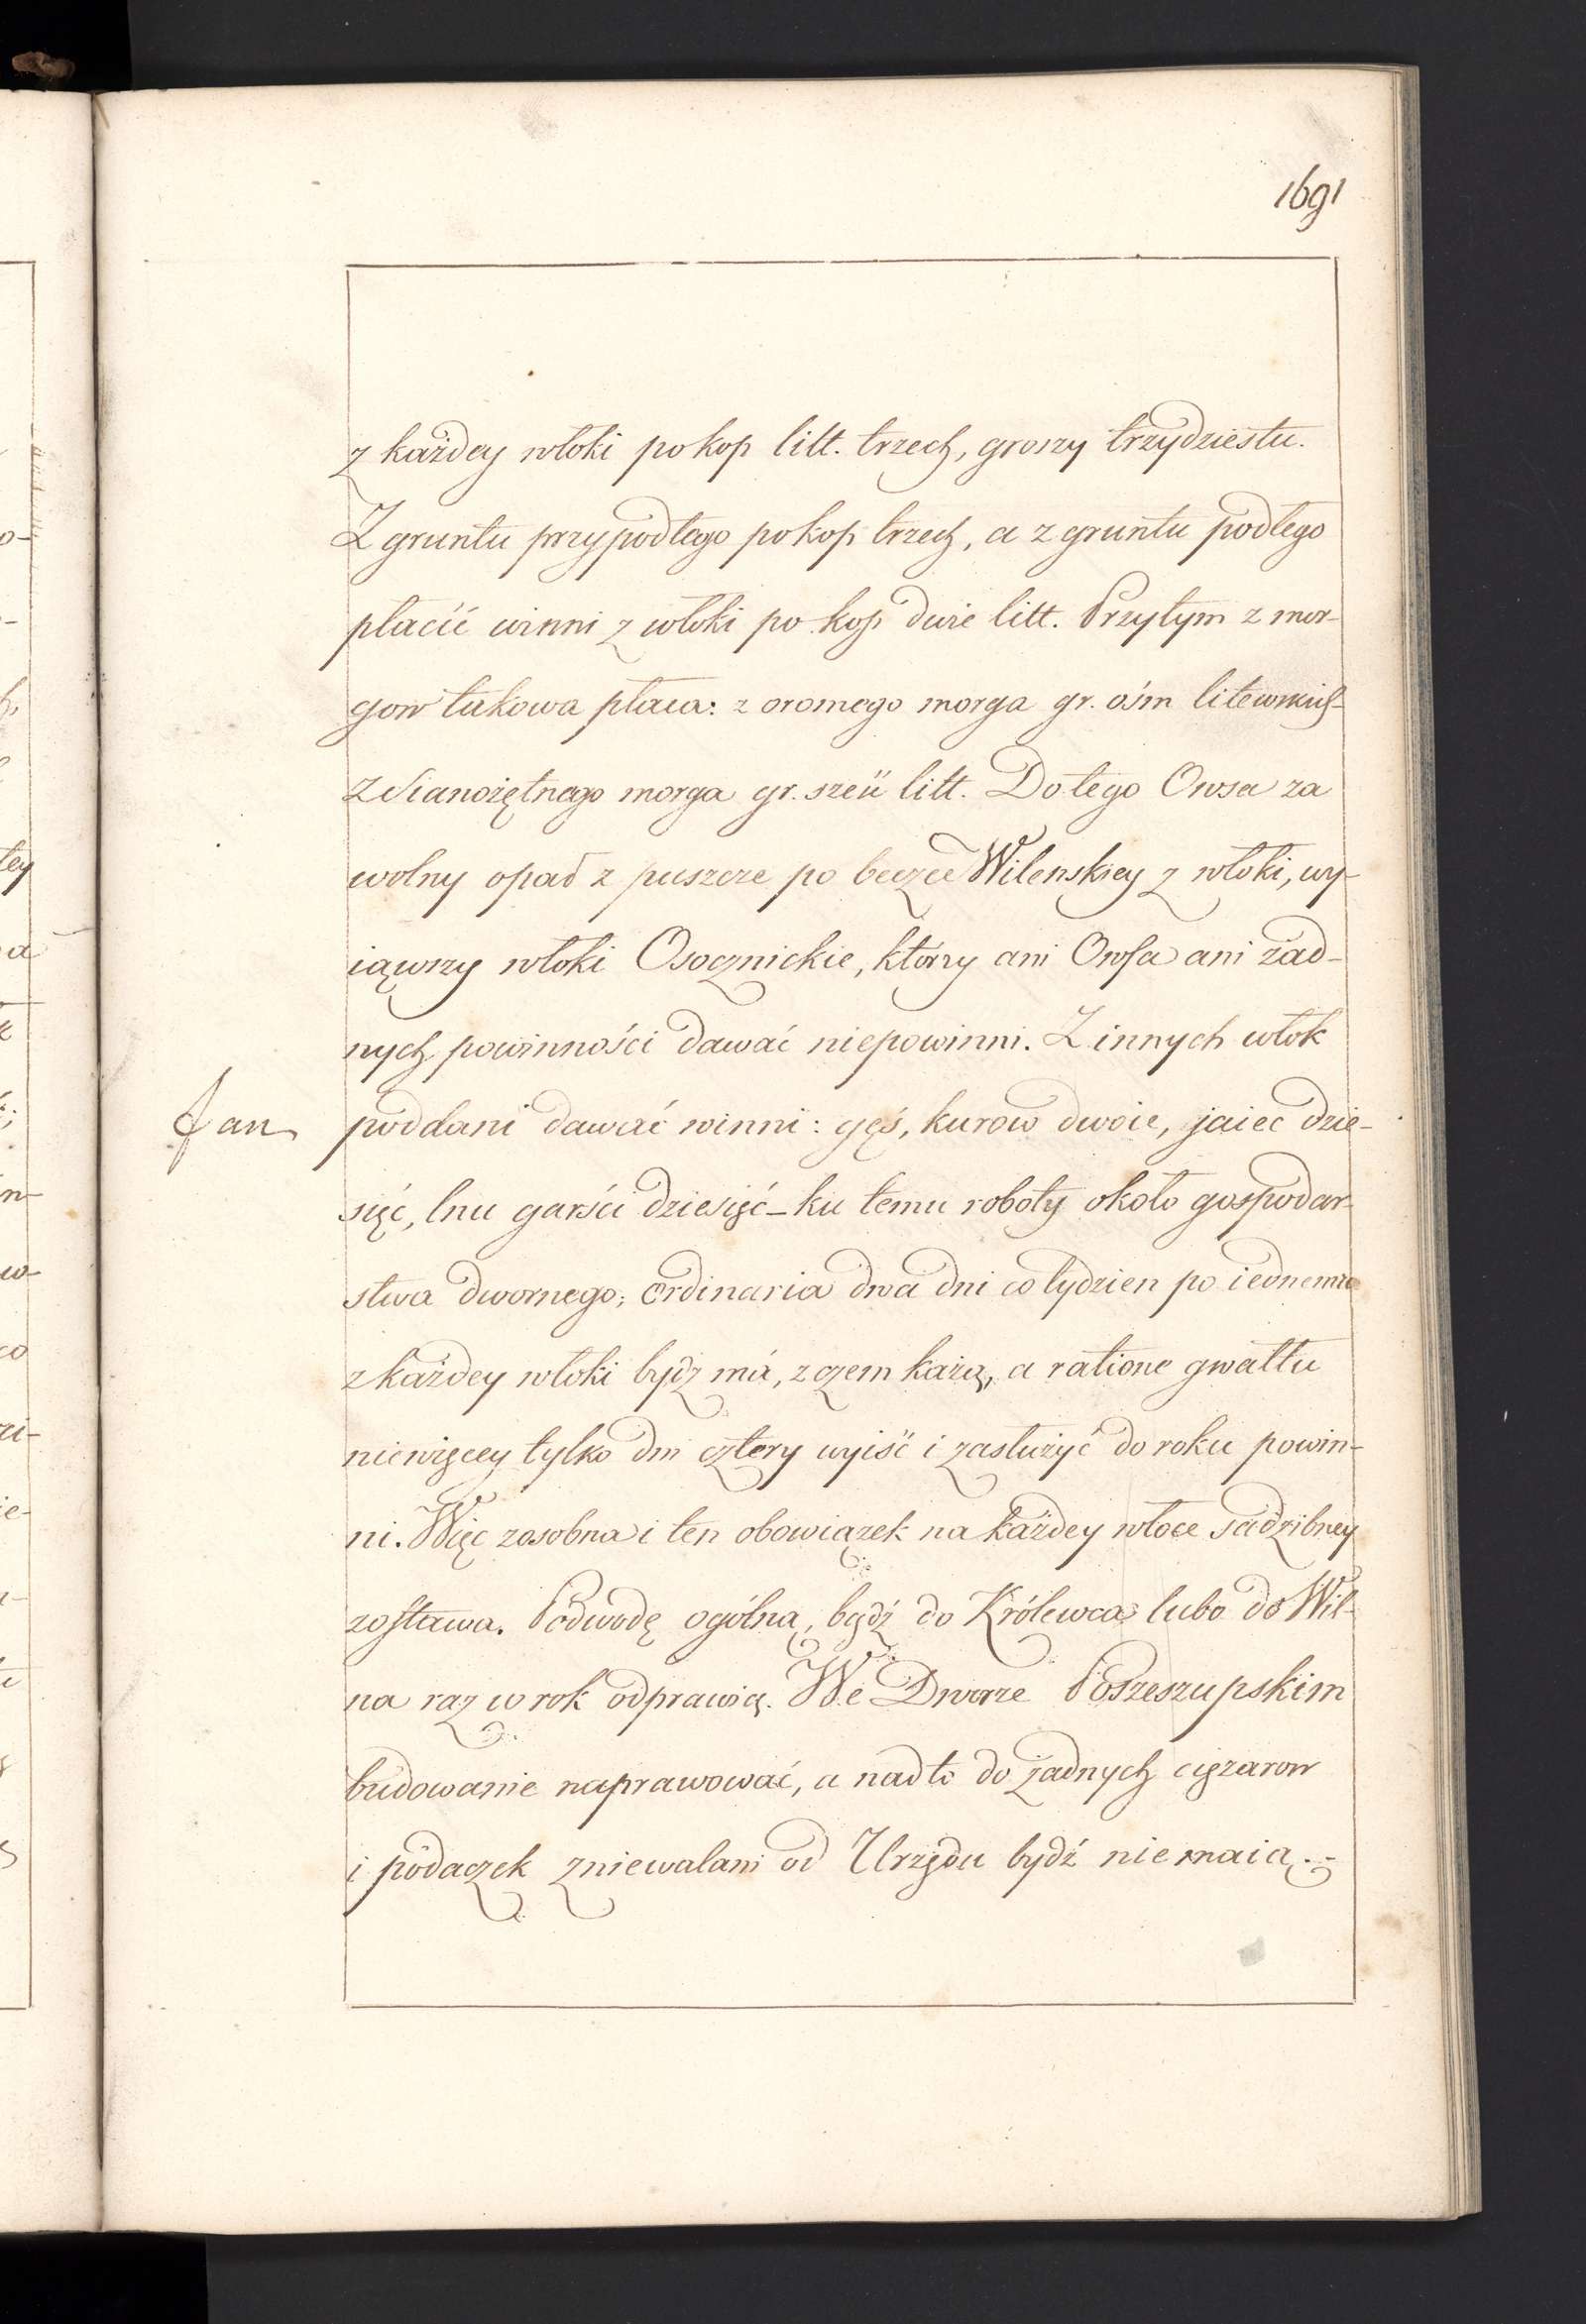 1691
z każdey włoki po kop litt. trzech, groszy trzydziestu.
Z gruntu przypodłego po kop trzech, a z gruntu podłego
płacić winni z włoki po kop dwie litt. Przytym z mor-
gow łukowa płaca: z oromego morga gr. ośm litewskich
z Sianożętnego morga gr. sześć litt. Do tego Owsa za
wolny opad z puszcze po beczce Wilenskiey z włoki, wy-
iąwszy włoki Osocznickie, którzy ani Owsa ani żad-
nych powinności dawać niepowinni. Z innych włok
Jan poddani dawać winni: gęś, kurow dwoie, jaiec dzie-
sięć, lnu garści dziesięć – ku temu roboty około gospodar-
stwa dwornego; ordinaria dwa dni co tydzien po iednemu
z każdey włoki bydz má, z czem każą, a ratione gwałtu
niewięcey tylko dni cztery wyiść i zasłużyć do roku powin-
ni. Więc zosobna i ten obowiązek na każdey włoce sadzibney
zostawa. Podwodę ogólną, bądź do Królewca lubo do Wil-
na raz w rok odprawią. We Dworze Poszeszupskim
budowanie naprawować, a nadto do żadnych ciężarow
i podaczek zniewalani od Urzędu bydź nie maią.-
tey
a
n-
w-
co
ie-